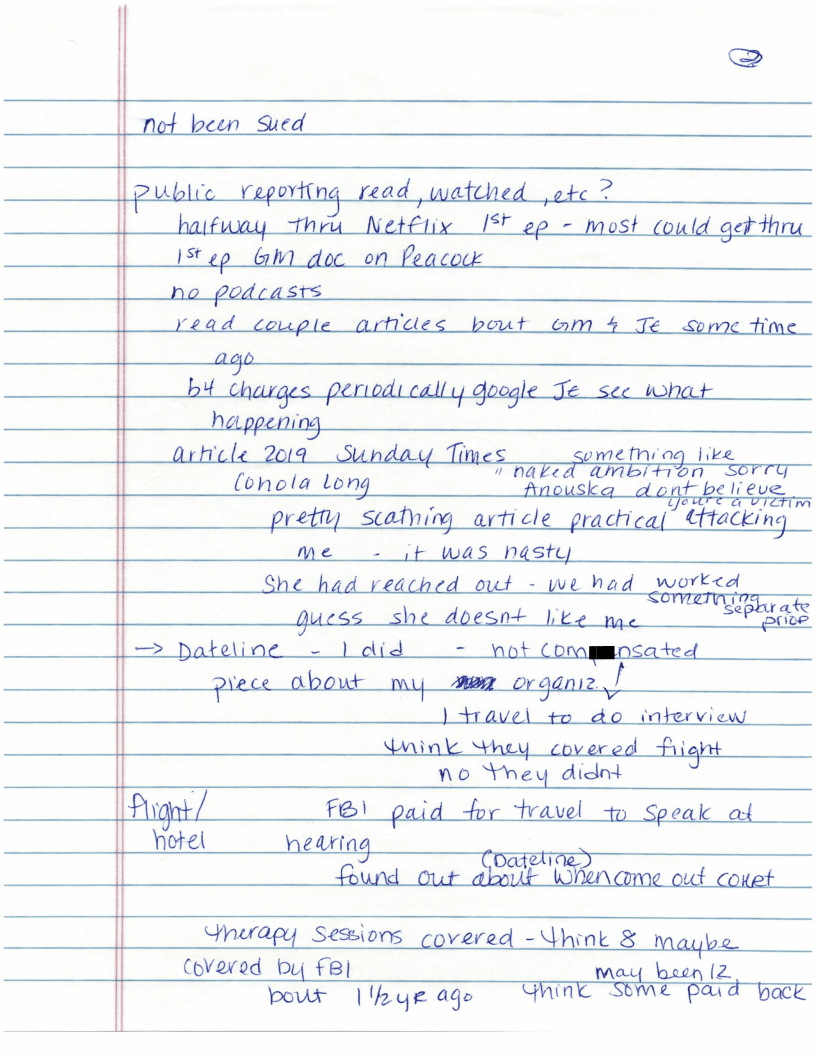 2
not been sued
public reporting read, watched, etc?
halfway thru Netflix 1st ep - most could get thru
1st ep GM doc on Peacock
no podcasts
read couple articles bout GM & JE some time
ago
b4 charges periodically google JE see what
happening
article 2019 Sunday Times something like
"naked ambition sorry
Conola Long Anouska dont believe
you're a victim
pretty scathing article practical attacking
me - it was nasty
She had reached out - we had worked
something separate
prior
guess she doesnt like me
→ Dateline - I did - not compensated
piece about my organiz.
I travel to do interview
think they covered flight
no they didnt
flight/ FBI paid for travel to speak at
hotel hearing
(Dateline)
found out about when come out court
therapy sessions covered - think 8 maybe
covered by FBI may been 12
bout 1 1/2 yr ago think some paid back